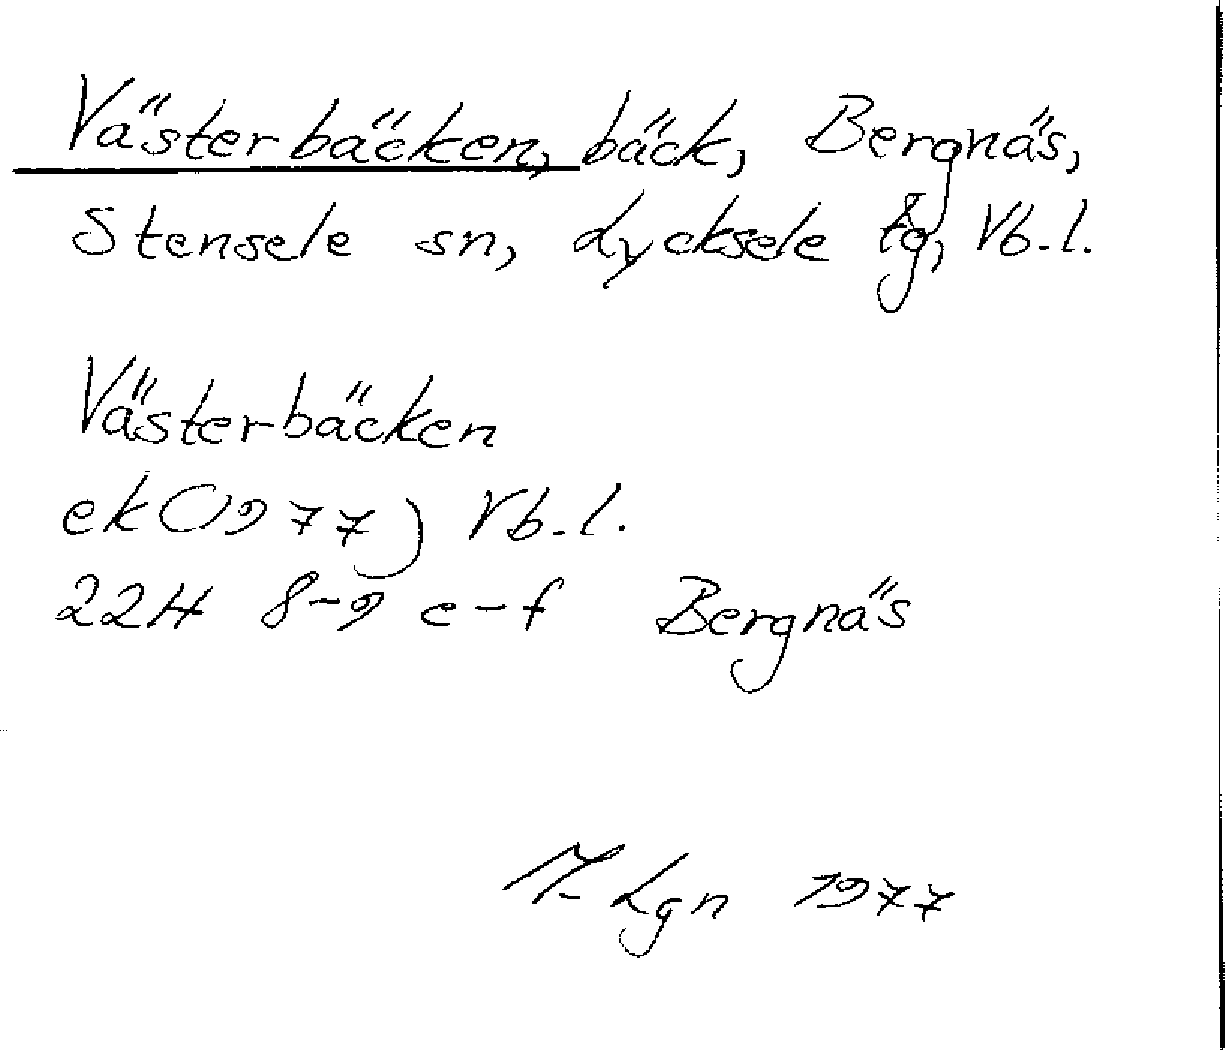 Västerbäcken, bäck, Bergnäs,
Stensele sn, Lycksele tg, Vb.l.
Västerbäcken
ek (1977) Vb.l.
22H 8-9 e-f Bergnäs
Lgn 1977